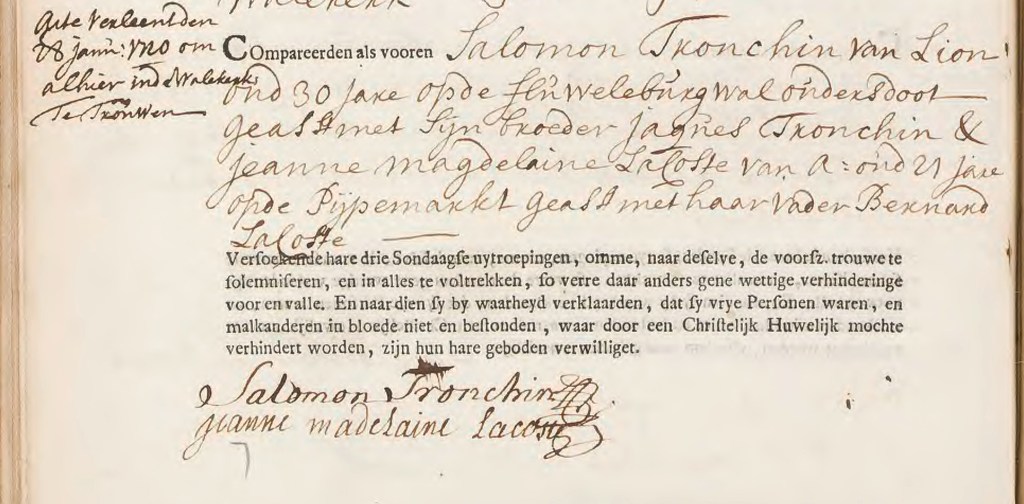 Walekerk
Acte Verleent den
28 janu: 1720 om
alhier inde Walekerk
Te Trouwen
COmpareerden als vooren Salomon Tronchin van Lion
oud 30 jare opde fluweleburgwal ouders doot
geasst met sijn broeder jaques Tronchin &
jeanne magdelaine LaCoste van A: oud 21 jare
opde Pijpemarkt geasst met haar vader Bernard
LaCoste
Verſoekende hare drie Sondaagſe uytroepingen, omme, naar deſelve, de voorſz. trouwe te
ſolemniſeren, en in alles te voltrekken, ſo verre daar anders gene wettige verhinderinge
voor en valle. En naar dien ſy by waarheyd verklaarden, dat ſy vrye Perſonen waren, en
malkanderen in bloede niet en beſtonden, waar door een Chriſtelijk Huwelijk mochte
verhindert worden, zijn hun hare geboden verwilliget.
Salomon Tronchin
jeanne madelaine Lacoste